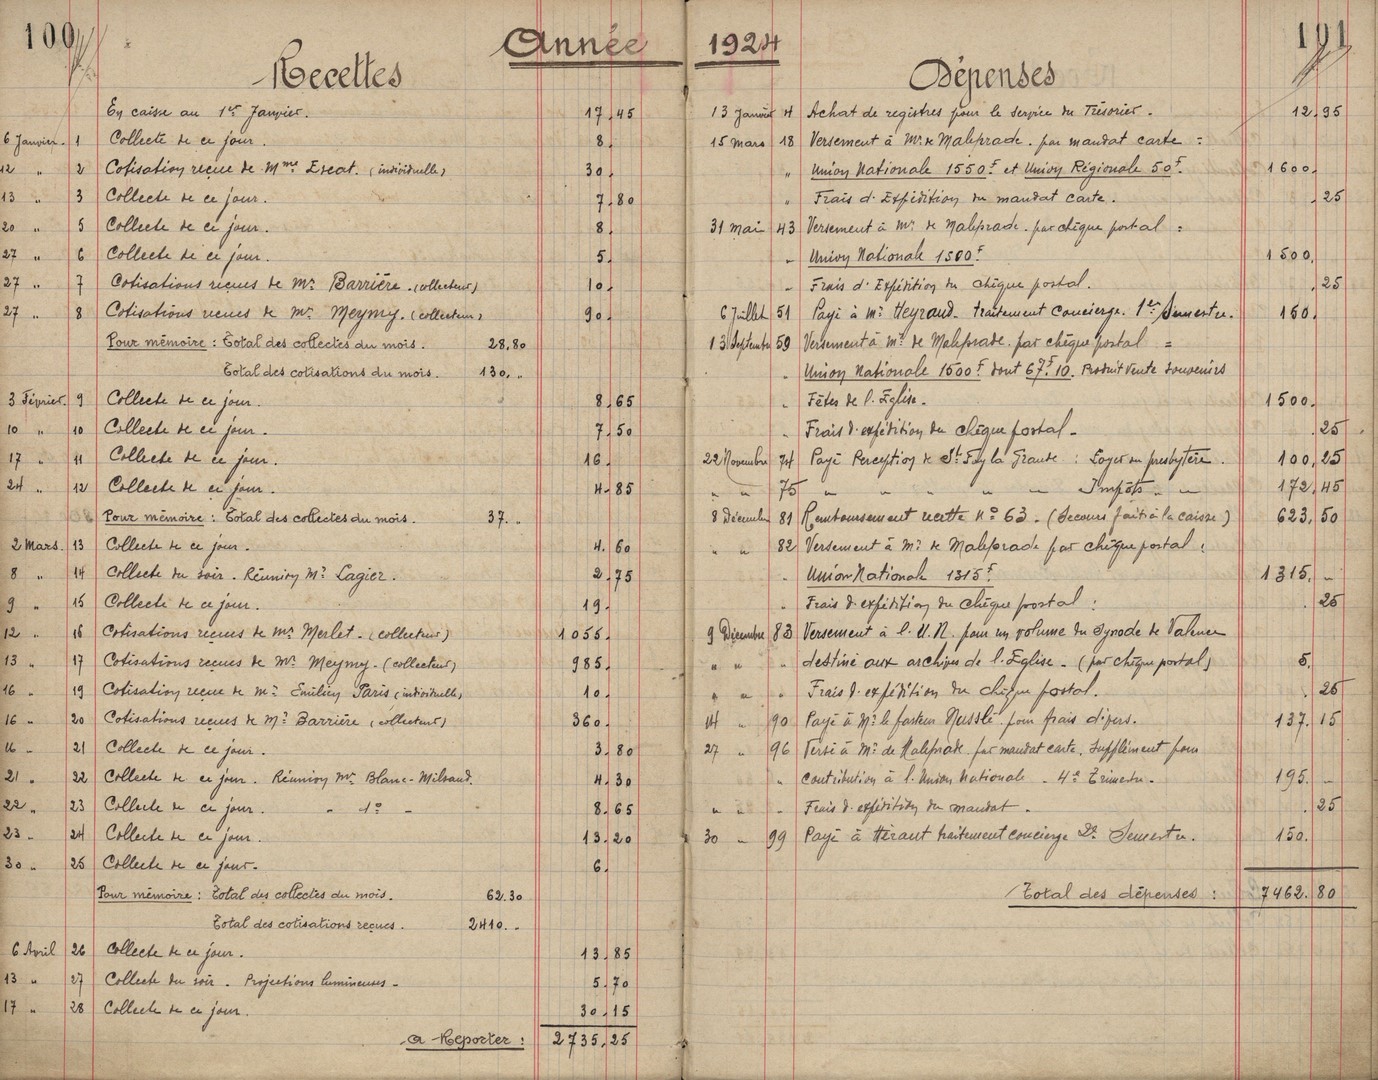 100
Année 1924
101
Recettes
En caisse au 1er Janvier. 17.45
6 Janvier. 1 Collecte de ce jour. 8.
12 " 2 Cotisation reçue de Mme Escat. (individuelle) 30.
13 " 3 Collecte de ce jour. 7.80
20 " 5 Collecte de ce jour. 8.
27 " 6 Collecte de ce jour. 5.
27 " 7 Cotisations reçues de Mr Barrière. (collecteur) 10.
27 " 8 Cotisations reçues de Mr Meymy. (collecteur) 90.
Pour mémoire : Total des collectes du mois. 28,80
Total des cotisations du mois. 130, "
3 Février. 9 Collecte de ce jour. 8.65
10 " 10 Collecte de ce jour. 7.50
17 " 11 Collecte de ce jour. 16.
24 " 12 Collecte de ce jour. 4.85
Pour mémoire : Total des collectes du mois. 37. "
2 Mars. 13 Collecte de ce jour. 4.60
8 " 14 Collecte du soir. Réunion Mr Lagier. 2.75
9 " 15 Collecte de ce jour. 19.
12 " 16 Cotisations reçues de Mr Merlet. (collecteur) 1055.
13 " 17 Cotisations reçues de Mr Meymy. (collecteur) 985.
16 " 19 Cotisation reçue de Mr Emilien Paris (individuelle) 10.
16 " 20 Cotisations reçues de Mr Barrière (collecteur) 360.
16 " 21 Collecte de ce jour. 3.80
21 " 22 Collecte de ce jour. Réunion Mr Blanc-Milsaud. 4.30
22 " 23 Collecte de ce jour. " do " 8.65
23 " 24 Collecte de ce jour. 13.20
30 " 25 Collecte de ce jour. 6.
Pour mémoire : Total des collectes du mois. 62.30
Total des cotisations reçues. 2410. "
6 Avril 26 Collecte de ce jour. 13.85
13 " 27 Collecte du soir. Projections lumineuses - 5.70
17 " 28 Collecte de ce jour. 30.15
A Reporter : 2735.25
Dépenses
13 Janvier 4 Achat de registres pour le service du Trésorier. 12.95
15 Mars 18 Versement à Mr de Maleprade. par mandat carte :
" Union Nationale 1550f et Union Régionale 50f. 1600.
" Frais d'Expédition du mandat carte. .25
31 Mai 43 Versement à Mr de Maleprade. par chèque postal :
" Union Nationale 1500f 1500.
" Frais d'Expédition du chèque postal. .25
6 Juillet 51 Payé à Mr Heyraud. traitement concierge. 1er Semestre. 150.
13 Septembre 59 Versement à Mr de Maleprade. par chèque postal =
" Union Nationale 1500f dont 67f.10. Produit Vente Souvenirs
" Fêtes de l'Eglise. 1500.
" Frais d'expédition du chèque postal - .25
22 Novembre 74 Payé Perception de St Foy la Grande : Loyer du presbytère. 100,25
" " 75 " " " " " " Impôts " " 172.45
8 Décembre 81 Remboursement recette No 63. (Secours fait à la caisse) 623,50
" " 82 Versement à Mr de Maleprade par chèque postal :
" Union Nationale 1315f. 1315. -
" Frais d'expédition du chèque postal : .25
9 Décembre 83 Versement à l'U.N. pour un volume du Synode de Valence
" " " destiné aux archives de l'Eglise - (par chèque postal) 5.
" " " Frais d'expédition du chèque postal. .25
14 " 90 Payé à Mr le pasteur Nusslé pour frais divers. 137.15
27 " 96 Versé à Mr de Maleprade. par mandat carte. Supplément pour
" contribution à l'Union Nationale - 4e Trimestre. 195. -
" " " Frais d'expédition du mandat. .25
30 " 99 Payé à Héraut traitement concierge 2e Semestre. 150.
Total des dépenses : 7462.80